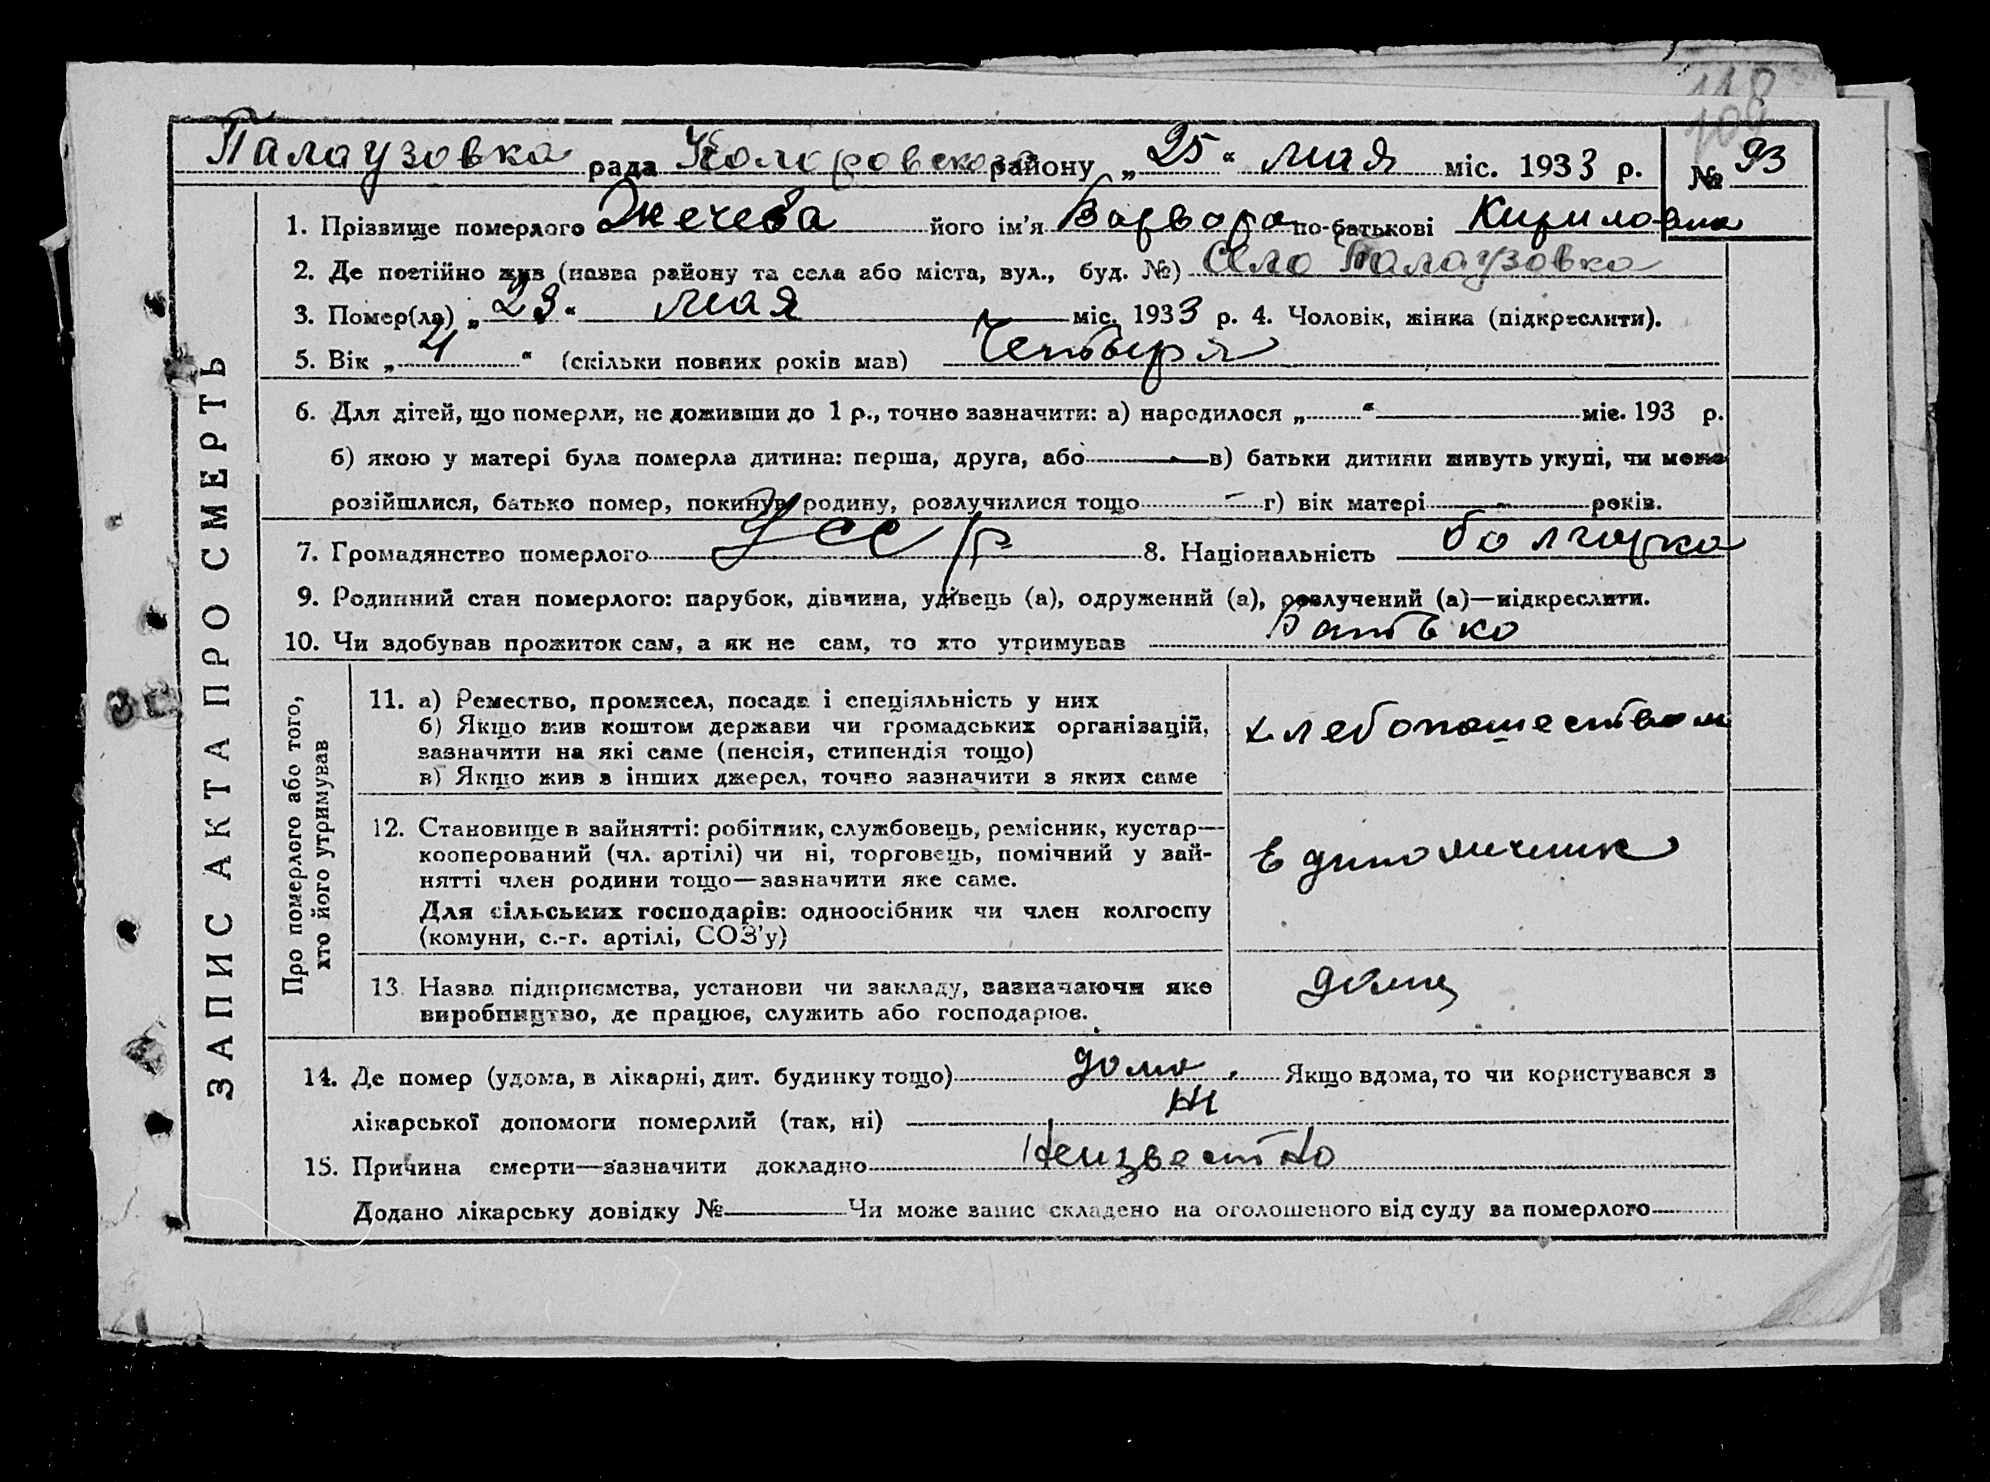 118
108
Палаузовка рада Коларовского району „25“ мая міс. 1933 р. № 93
ЗАПИС АКТА ПРО СМЕРТЬ
1. Прізвище померлого Джечева його ім'я Варвара по-батькові Кириловна
2. Де постійно жив (назва району та села або міста, вул., буд. №) село Палаузовка
3. Помер(ла) „23“ мая міс. 1933 р. 4. Чоловік, жінка (підкреслити).
5. Вік „4“ (скільки повних років мав) Четыри
6. Для дітей, що померли, не доживши до 1 р., точно зазначити: а) народилося „ “ міс. 193 р.
б) якою у матері була померла дитина: перша, друга, або — в) батьки дитини живуть укупі, чи може
розійшлися, батько помер, покинув родину, розлучилися тощо — г) вік матері — років.
7. Громадянство померлого УССР 8. Національність болгарка
9. Родинний стан померлого: парубок, дівчина, удівець (а), одружений (а), розлучений (а)—підкреслити.
10. Чи здобував прожиток сам, а як не сам, то хто утримував Батько
Про померлого або того,
хто його утримував
11. а) Ремество, промисел, посада і спеціяльність у них
б) Якщо жив коштом держави чи громадських організацій,
зазначити на які саме (пенсія, стипендія тощо)
в) Якщо жив з інших джерел, точно зазначити з яких саме
хлебопашеством
12. Становище в зайнятті: робітник, службовець, ремісник, кустар—
кооперований (чл. артілі) чи ні, торговець, помічний у зай-
нятті член родини тощо—зазначити яке саме.
Для сільських господарів: одноосібник чи член колгоспу
(комуни, с.-г. артілі, СОЗ'у)
Единоличник
13. Назва підприємства, установи чи закладу, зазначаючи яке
виробництво, де працює, служить або господарює.
14. Де помер (удома, в лікарні, дит. будинку тощо) дома. Якщо вдома, то чи користувався з
лікарської допомоги померлий (так, ні) ні
15. Причина смерти—зазначити докладно Неизвестно
Додано лікарську довідку № — Чи може запис складено на оголошеного від суду за померлого